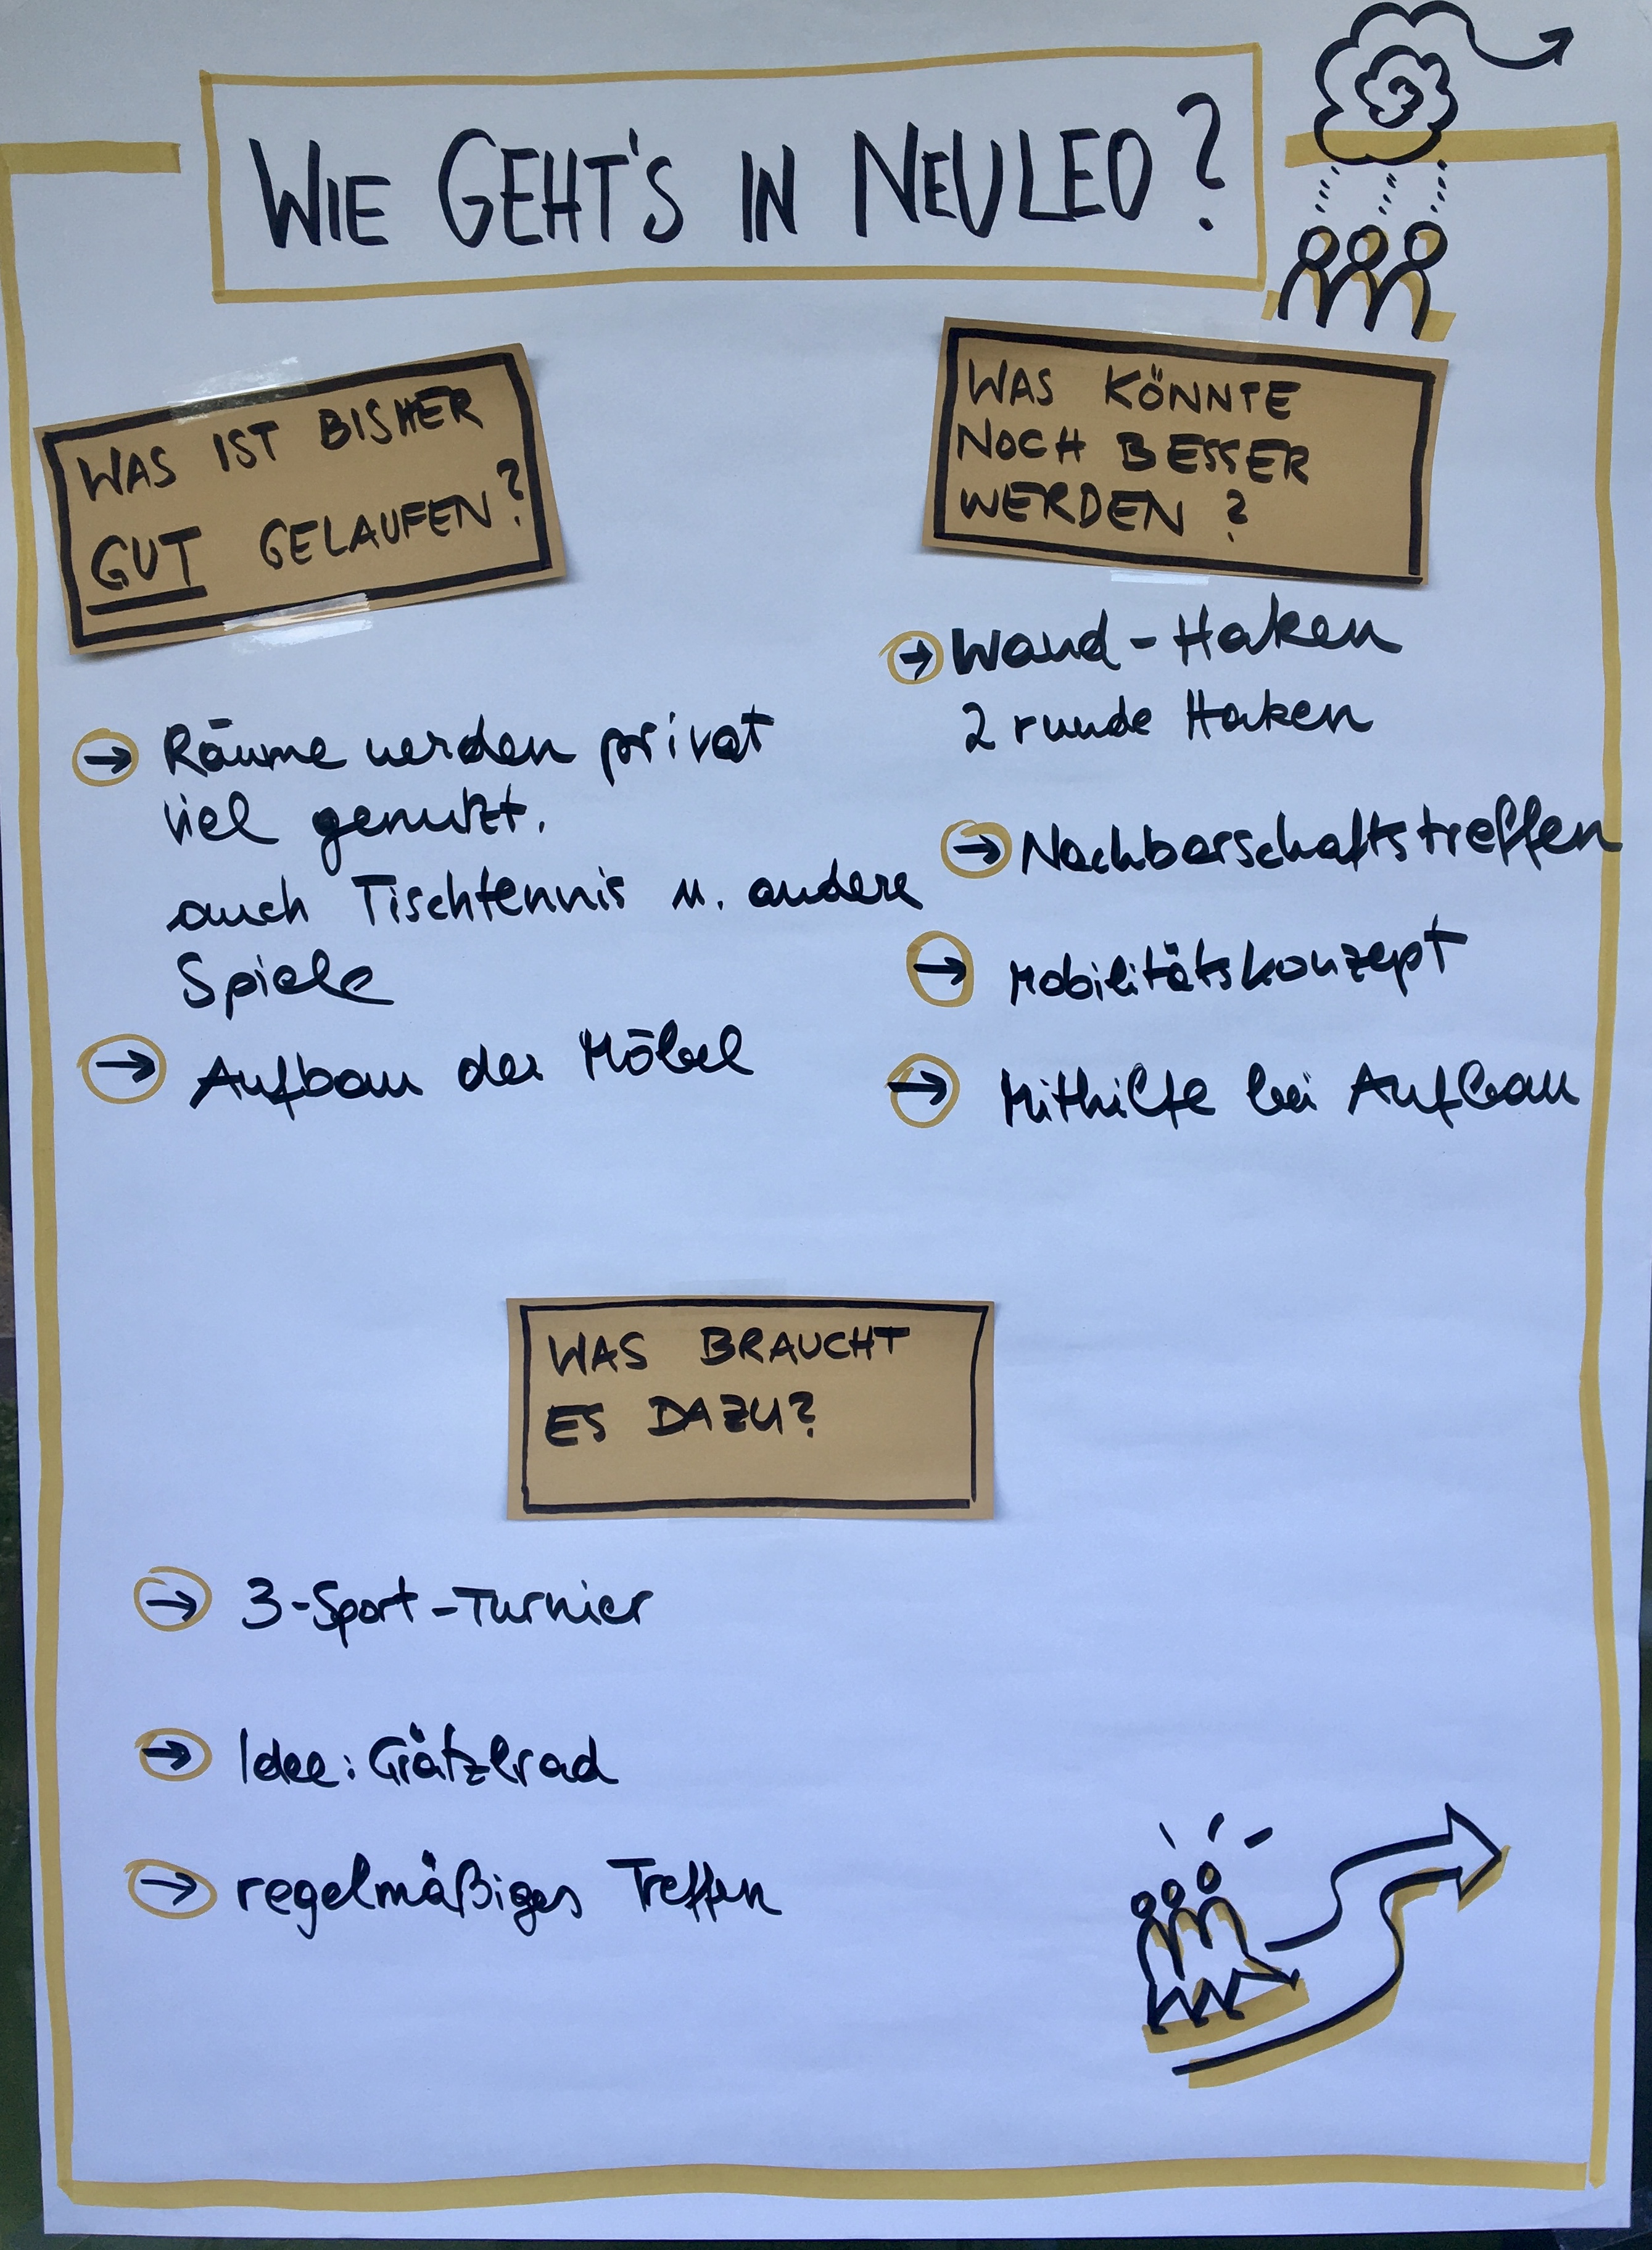 WIE GEHT'S IN NEULEO?
WAS IST BISHER
GUT GELAUFEN?
→ Räume werden privat
viel genutzt.
auch Tischtennis u. andere
Spiele
→ Aufbau der Möbel
WAS KÖNNTE
NOCH BESSER
WERDEN?
→ Wand-Haken
2 runde Haken
→ Nachbarschaftstreffen
→ Mobilitätskonzept
→ Mithilfe bei Aufbau
WAS BRAUCHT
ES DAZU?
→ 3-Sport-Turnier
→ Idee: Grätzlrad
→ regelmäßiges Treffen